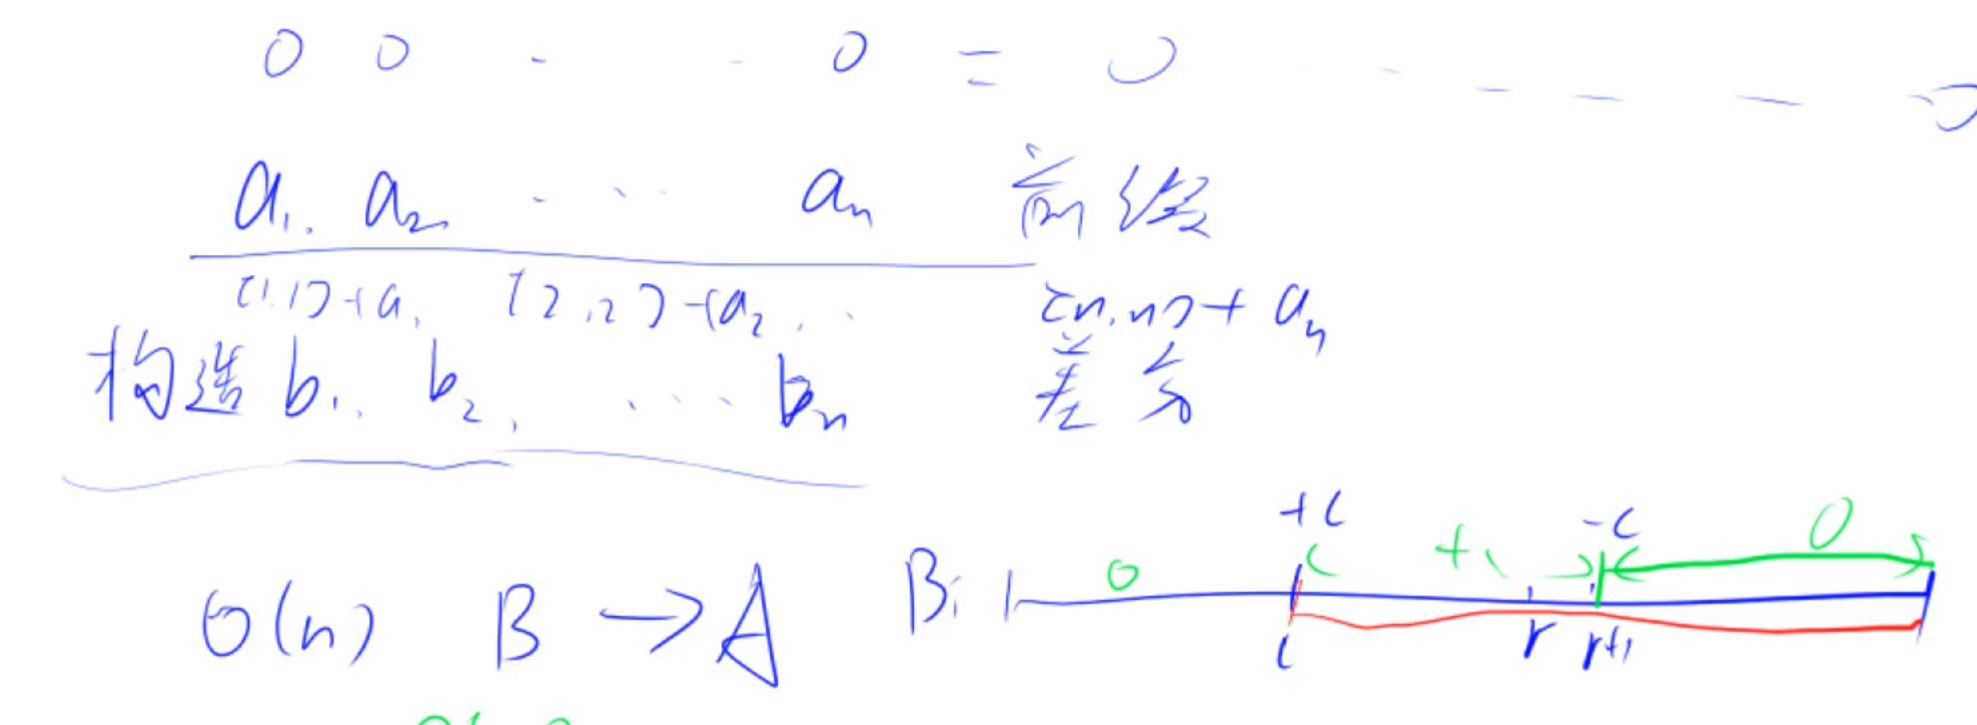 0 0 - - 0 = 0 - - - - - 0
a1, a2, - ··· an 前缀
[1,1]+a1 [2,2]+a2, ·· [n,n]+an
构造 b1, b2, ··· bn 差分
+c -c 0
B: 0 +c
O(n) B → A
l r r+1